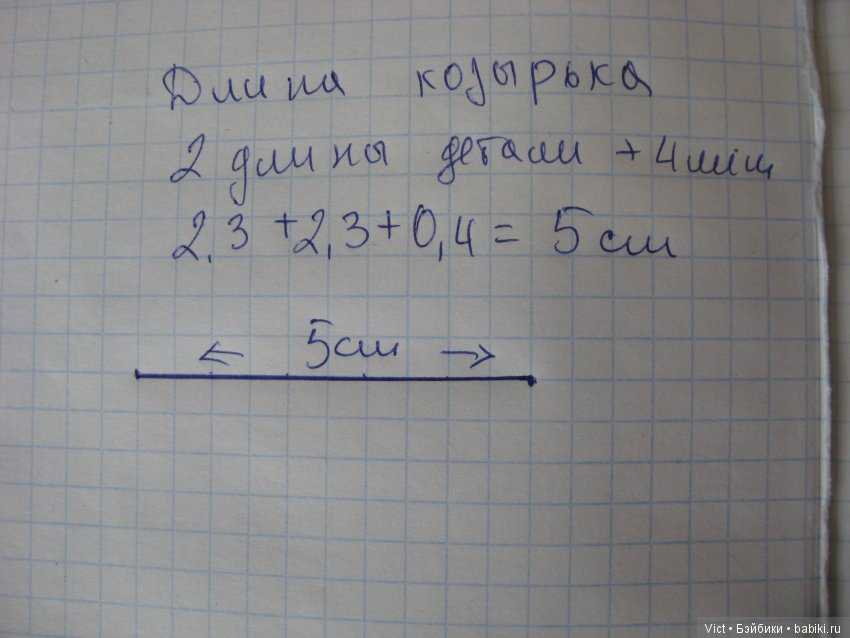 Длина козырька
2 длины детали + 4мм
2,3 + 2,3 + 0,4 = 5см
← 5см →
Vict • Бэйбики • babiki.ru